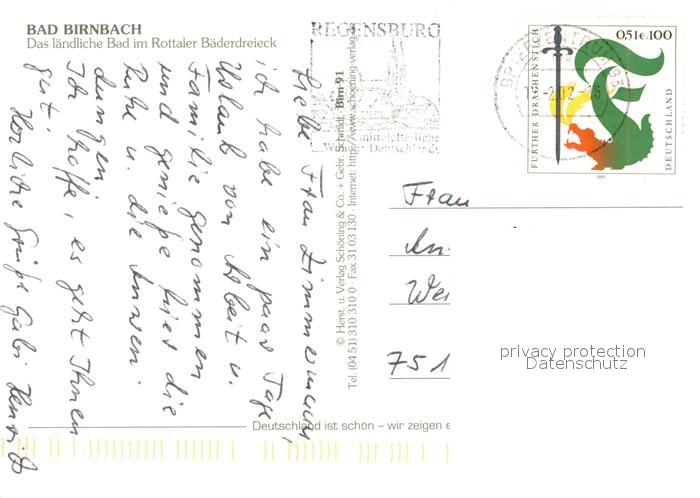 BAD BIRNBACH
Das ländliche Bad im Rottaler Bäderdreieck
REGENSBURG
mittelalterliche
Deutschlands
BRIEFZENTRUM
FURTHER DRACHENSTICH
0,51€ 100
DEUTSCHLAND
2001
Liebe Frau Zimmermann,
ich habe ein paar Tage
Urlaub von Arbeit u.
Familie genommen
und genieße hier die
Ruhe u. die Anwen-
dungen.
Ich hoffe, es geht Ihnen
gut.
Herzliche Grüße Gabi
© Herst. u. Verlag Schöning & Co. + Gebr. Schmidt · Birn 91
Tel. (04 51) 310 310 0 · Fax 31 03 130 · Internet: http://www.schoening-verlag.de
Frau
An
Wei
751
privacy protection
Datenschutz
Deutschland ist schön – wir zeigen e